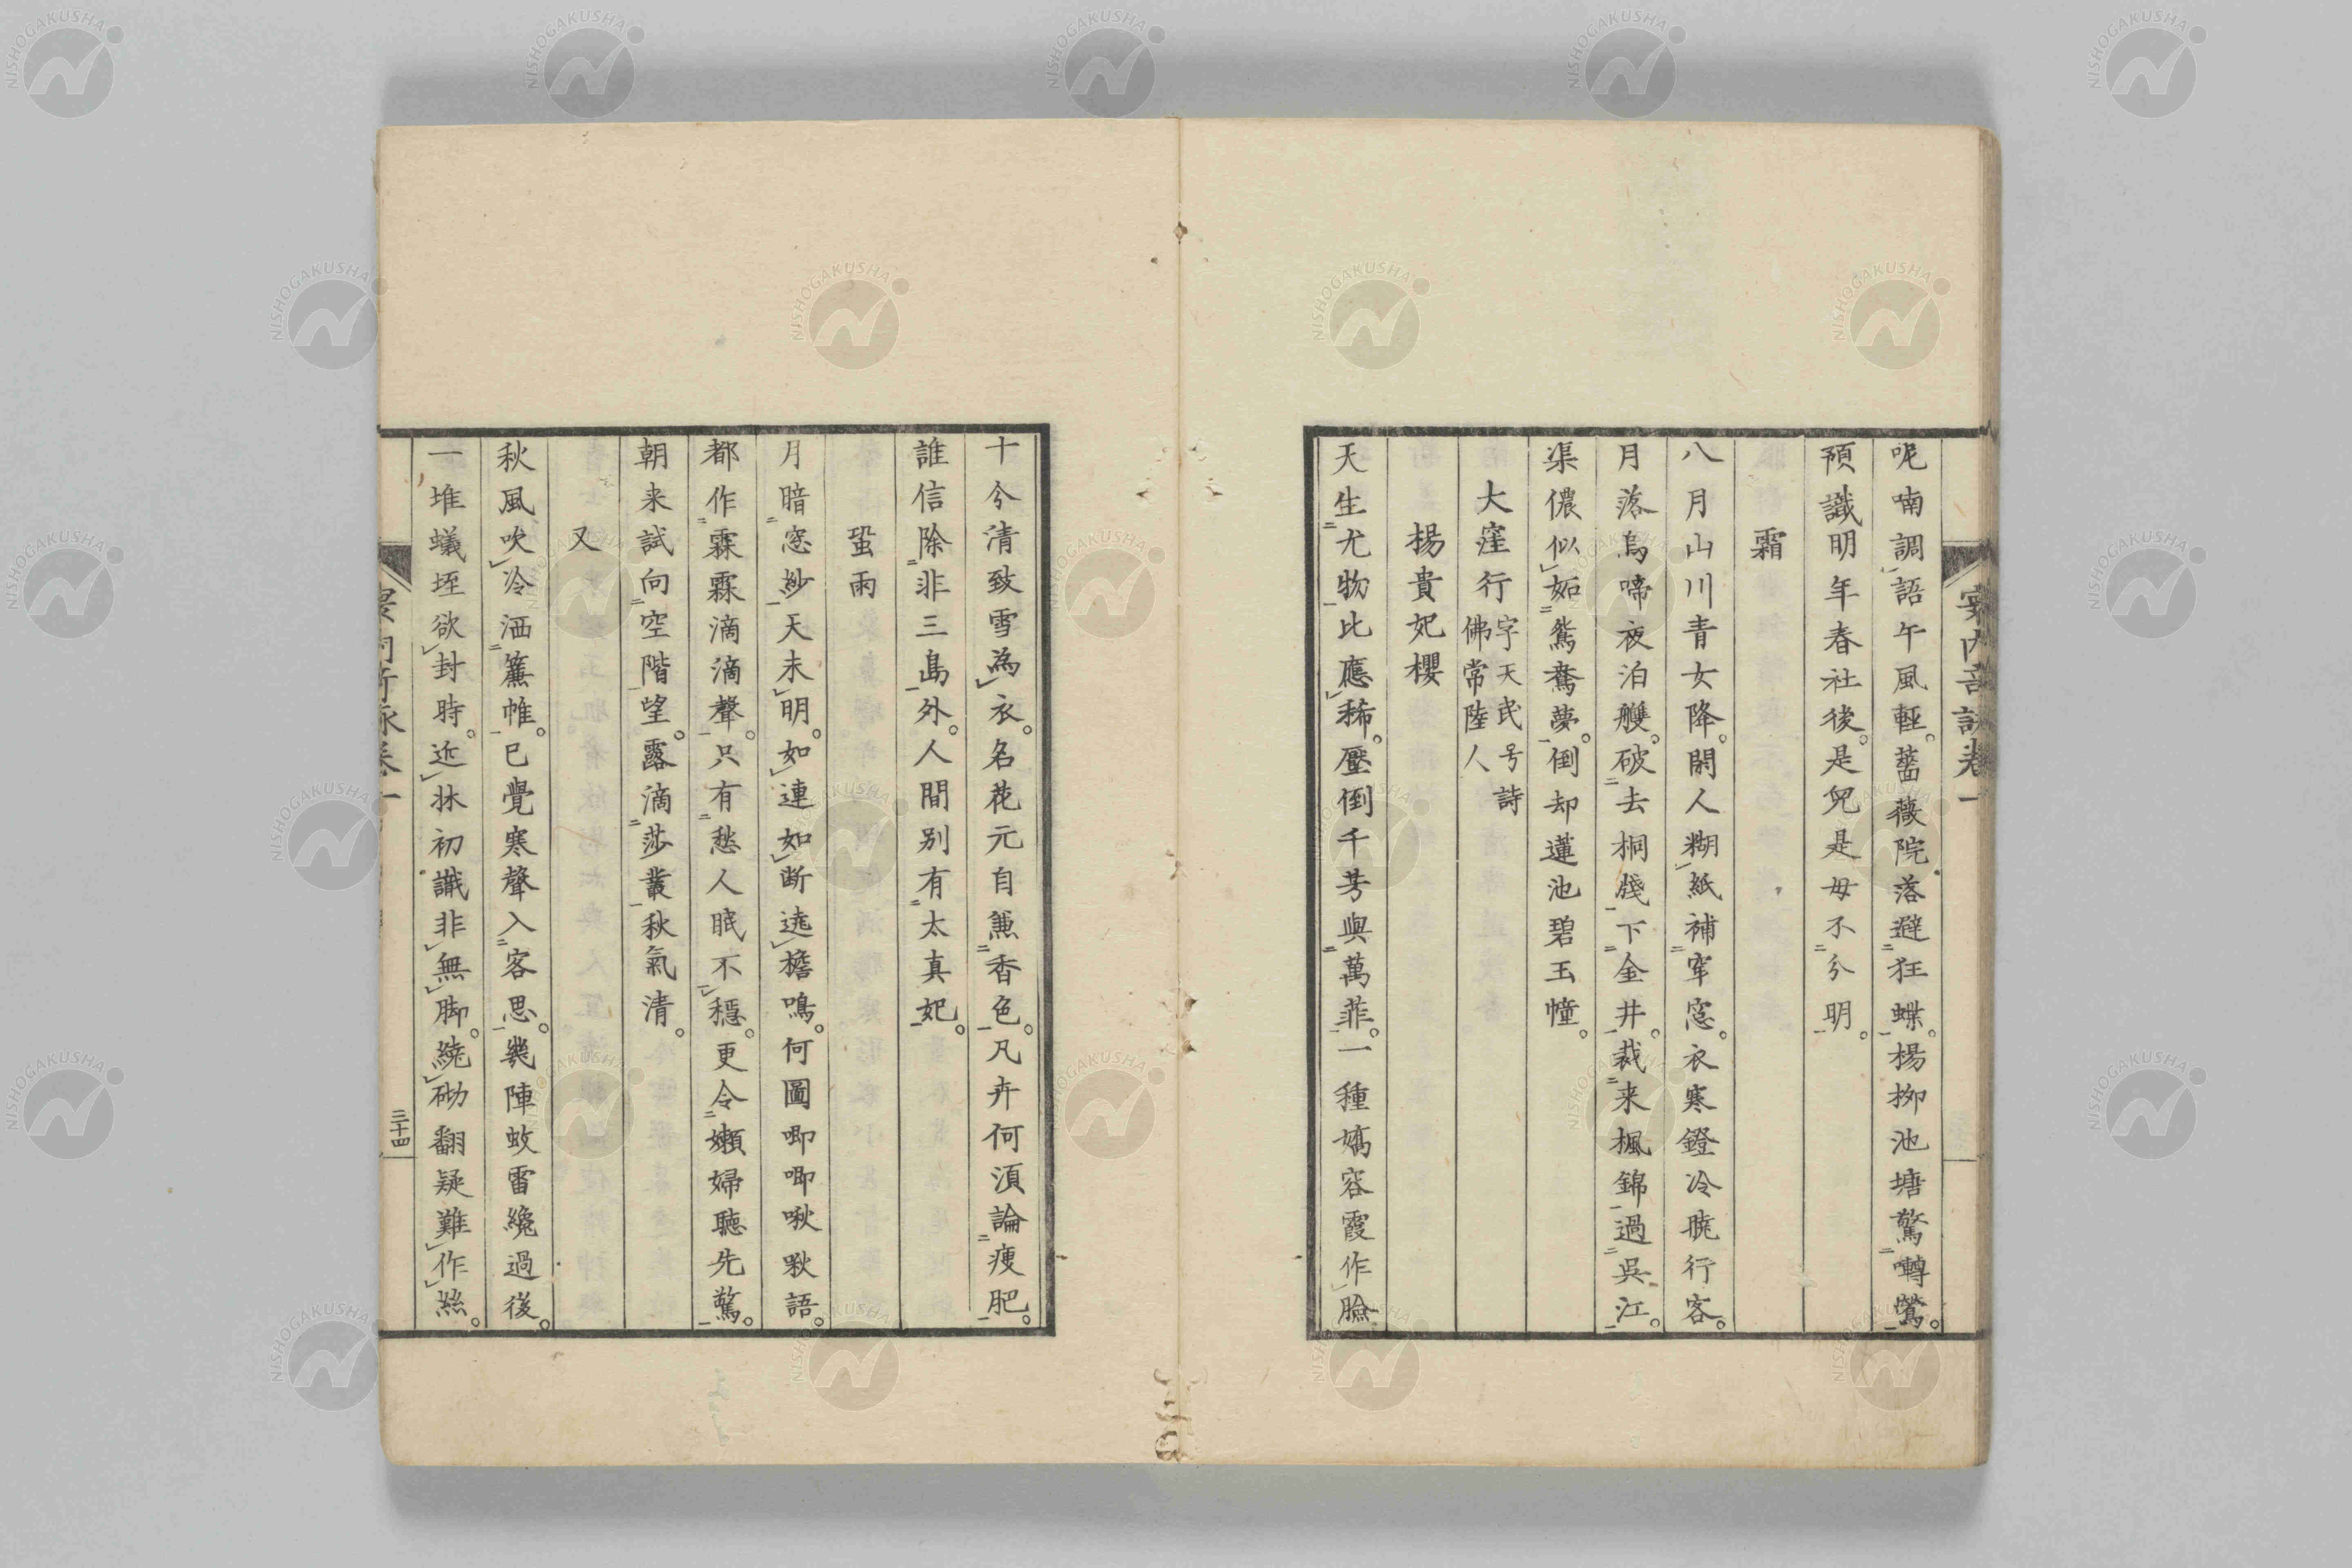 呢喃調語午風輕薔薇院落避狂蝶楊栁池塘驚囀鶯
預識明年春社後是兒是母不分明
霜
八月山川青女降閼人糊紙補窂窓衣寒鐙冷曉行客
月落烏啼夜泊艭破去桐牋下金井裁来楓錦過呉江
渠儂似妬鴛鴦夢倒却蓮池碧玉幢
大窪行字天民号詩佛常陸人
楊貴妃櫻
天生尤物比應稀壓倒千芳與萬菲一種嬌容霞作臉
十分清致雪為衣名花元自兼香色凡卉何須論痩肥
誰信除非三島外人間別有太真妃
蛩雨
月暗窓紗天未明如連如断遶檐鳴何圖喞喞啾啾語
都作霖霖滴滴聲只有愁人眠不穩更令嬾婦聽先驚
朝来試向空階望露滴莎叢秋氣清
又
秋風吹冷洒簾帷已覺寒聲入客思幾陣蚊雷纔過後
一堆蟻垤欲封時近牀初識非無脚繞砌翻疑難作絲
三十四